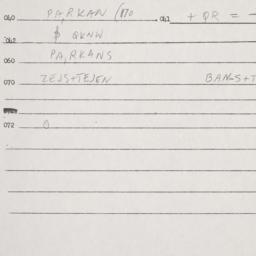 040 PARKAN (170 041 + QR = -
042 $ QKNW
060 PARKANS
070 ZEJS+TEJEN BANS+T
072 0